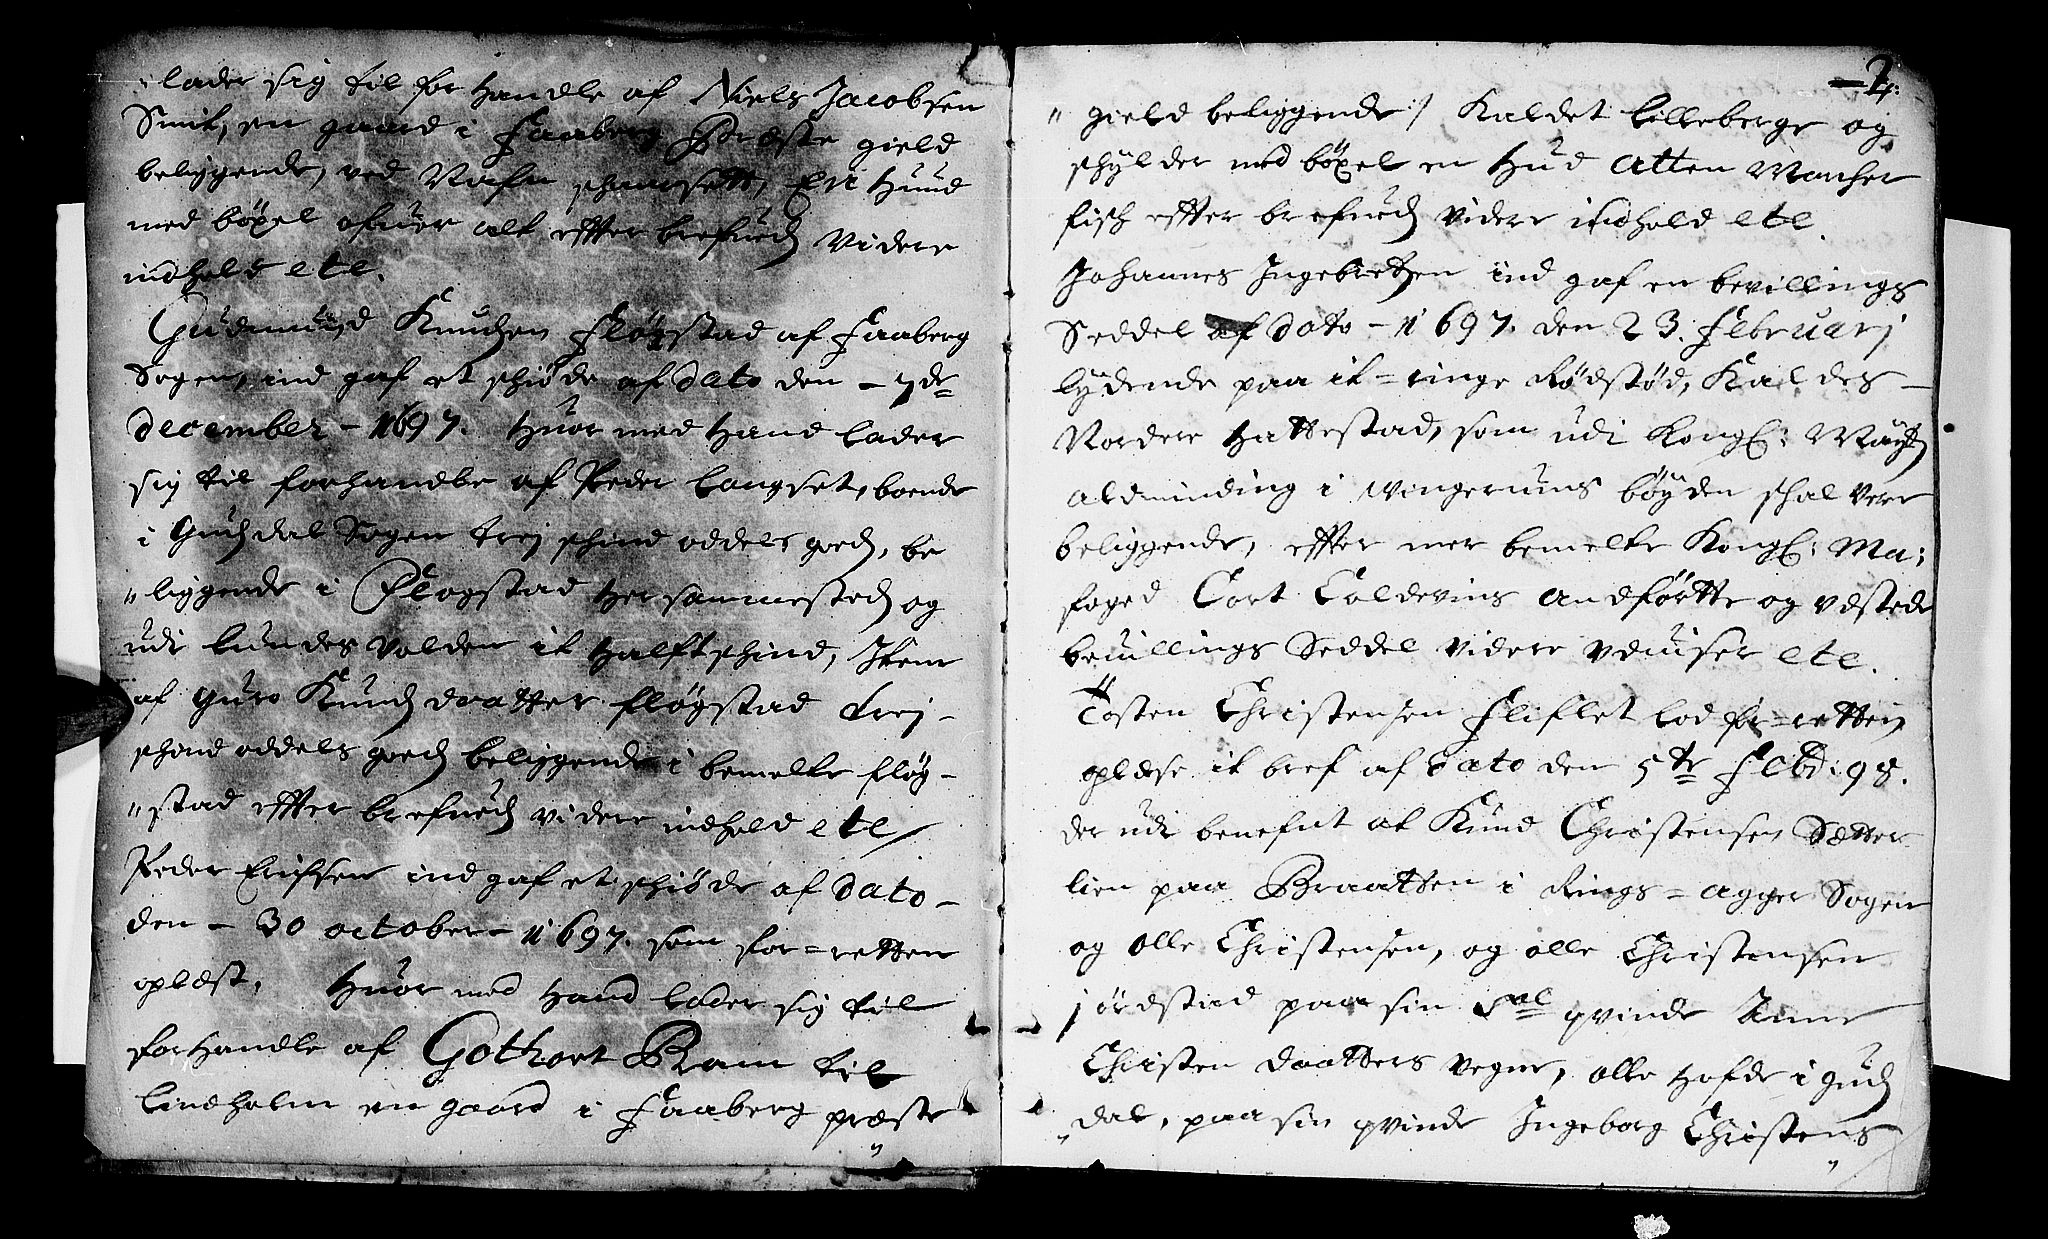 lader sig til for Handle af Niels Jacobsen
Smit, en gaard i Faaberg Præste gield
beliggende, ved Nafn schamsett, En Huud
med böxel ofuer alt effter brefued videre
indhold etc.
Gudmund Knudsen Flögstad af Faaberg
Sogen, ind gaf et schiöde af dato den - 7de
december - 1697. Huor med Hand lader
sig til forhandle af Peder Langset, boende
i Gudsdal Sogen trej schind oddels goeds, be
" liggende i Flogstad Her sammesteds og
udi Lundes Volden it Halft schind, Item
af Guro Knuds daatter flögstad trej -
schind oddels goeds beliggende i bemelte flög -
" stad effter brefueds videre indhold etc
Peder Erichsen ind gaf et schiöde af dato -
den - 30 october - 1697. som for = retten
oplæst, Huor med Hand lader sig til
forHandle af Gothort Bram til
Lindholm en gaard i Faaberg præste
2:
" gield beliggende :/ Kaldet Lilleberge og
schylder med böxel en Hud Atten Marcher
fisch effter brefueds videre indhold etc.
Johannes Ingebretsen ind gaf en bevillings
Seddel af dato - 1697. den 23. Februarj
lydende paa it = ringe Rödstöd, Kaldes -
Nordere Hattestad, som udi Kongl: Mayts
aldminding i Wingerums böyden schal vere
beliggende, effter mer bemelte Kongl: Ma:
foged Cort Coldevins Andförtte og vdstede
beuillings Seddel videre vduiser etc.
Tosten Christensen Fliflet lod for = retten
oplæse it bref af dato den 5te Febr: 98.
der udi benefnt at Knud Christensen Sætter
lien paa Braatten i Rings = agger Sogen
og olle Christensen, og olle Christensen
jördstad paa sin qvinde Anne
Christen daatters vegne, olle Hofde i Guds
" dal, paa sin qvinde Ingeborg Christens